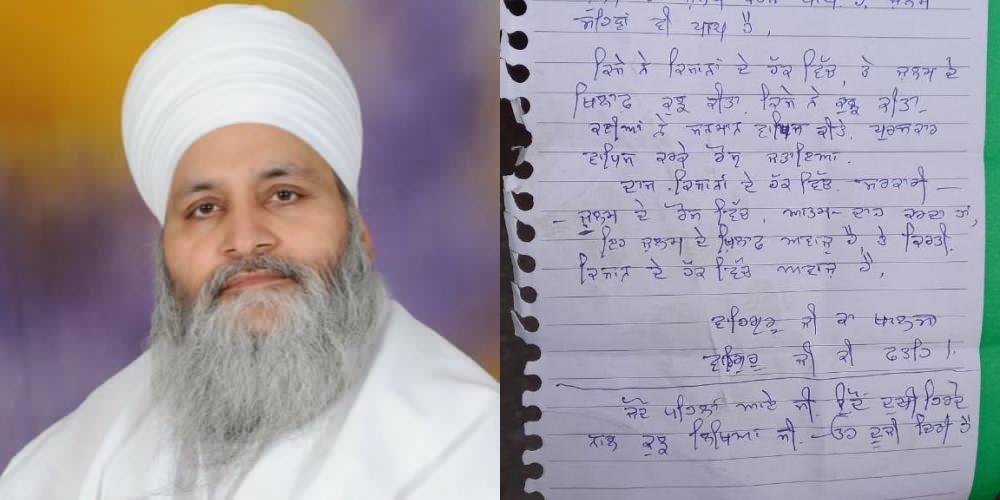 ਸਹਿਣਾ ਵੀ ਪਾਪ ਹੈ,
ਕਿਸੇ ਨੇ ਕਿਸਾਨਾਂ ਦੇ ਹੱਕ ਵਿੱਚ, ਤੇ ਜੁਲਮ ਦੇ
ਖਿਲਾਫ ਕੁਝ ਕੀਤਾ, ਕਿਸੇ ਨੇ ਕੁਝ ਕੀਤਾ
ਕਈਆਂ ਨੇ ਸਨਮਾਨ ਵਾਪਿਸ ਕੀਤੇ, ਪੁਰਸਕਾਰ
ਵਾਪਿਸ ਕਰਕੇ ਰੋਸ ਜਤਾਇਆ.
ਦਾਸ ਕਿਸਾਨਾਂ ਦੇ ਹੱਕ ਵਿੱਚ, ਸਰਕਾਰੀ –
– ਜੁਲਮ ਦੇ ਰੋਸ ਵਿੱਚ, ਆਤਮ-ਦਾਹ ਕਰਦਾ ਹਾਂ,
ਇਹ ਜੁਲਮ ਦੇ ਖਿਲਾਫ ਆਵਾਜ਼ ਹੈ, ਤੇ ਕਿਰਤੀ
ਕਿਸਾਨ ਦੇ ਹੱਕ ਵਿੱਚ ਆਵਾਜ਼ ਹੈ,
ਵਾਹਿਗੁਰੂ ਜੀ ਕਾ ਖਾਲਸਾ
ਵਾਹਿਗੁਰੂ ਜੀ ਕੀ ਫਤਹਿ।
ਜਦੋਂ ਪਹਿਲਾਂ ਆਏ ਸੀ, ਉਦੋਂ ਦੁਖੀ ਹਿਰਦੇ
ਨਾਲ ਕੁਝ ਲਿਖਿਆ ਸੀ – ਉਹ ਦੂਜੀ ਚਿਠੀ ਹੈ